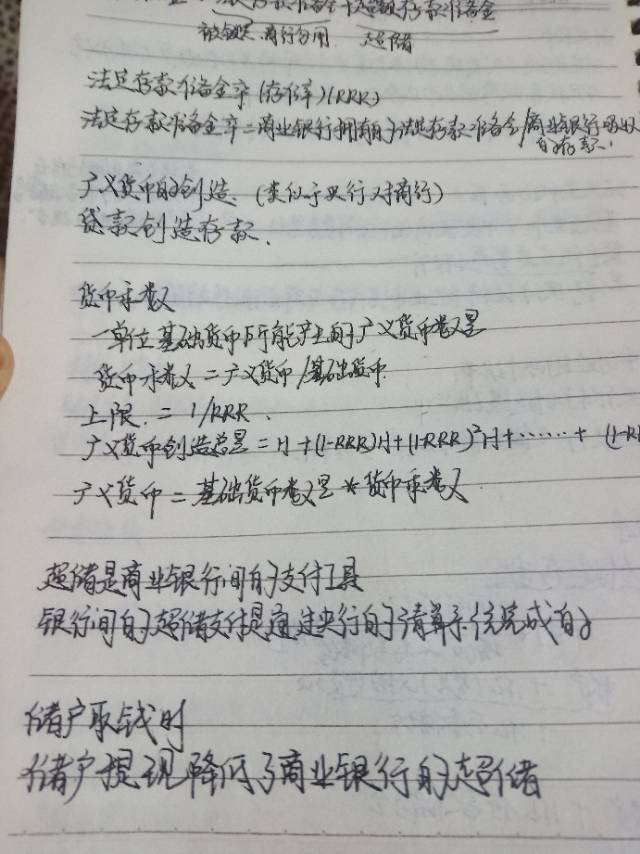 法定存款准备金+超额存款准备金
被锁定,商行勿用 超储
法定存款准备金率(存准率)(RRR)
法定存款准备金率=商业银行拥有的法定存款准备金/商业银行吸收
的存款.
广义货币的创造 (类似于央行对商行)
贷款创造存款.
货币乘数
一单位基础货币所能产生的广义货币数量
货币乘数=广义货币/基础货币.
上限.=1/RRR.
广义货币创造总量=H+(1-RRR)H+(1-RRR)²H+……+(1-R
广义货币=基础货币数量*货币乘数.
超储是商业银行间的支付工具
银行间的超储支付是通过央行的清算系统完成的
储户取钱时
储户提现降低了商业银行的超储